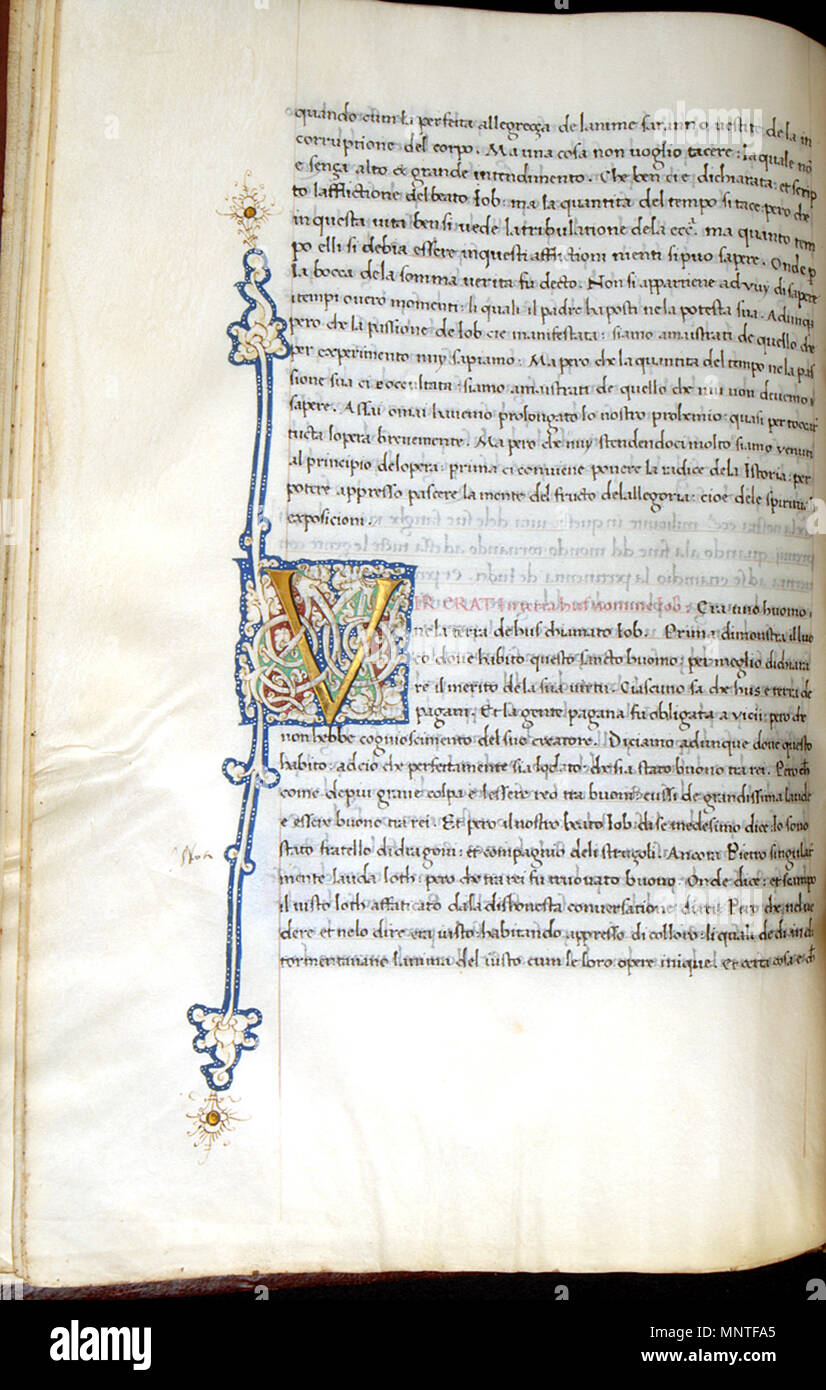 quando cum la perfecta allegreçça de lanime saranno uestite de la in
corruptione del corpo. Ma una cosa non uoglio tacere: la quale nō
e sença alto & grande intendimento. Che ben ci e dichiarata: et scrip
to lafflictione del beato Iob: ma la quantita del tempo si tace pero che
in questa uita ben si uede la tribulatione de la eccᵃ. ma quanto tem
po elli si debia essere in questi affliction nienti si puo sapere. Onde p
la bocca de la somma uerita fu decto. Non si appartiene ad vuy di sapere
i tempi ouero momenti: li quali il padre ha posti ne la potesta sua. Adunq
pero che la passione de Iob ci e manifestata: siamo amaistrati de quello che
per experimento nuy sapiamo: Ma pero che la quantita del tempo ne la pas
sione sua ci e occultata: siamo amaistrati de quello che nui non deuemo
sapere. Assai omai hauemo prolongato lo nostro prohemio: quasi per toccar
tucta lopera breuemente. Ma pero che nuy stendendoci molto siamo uenuti
al principio de lopera: prima ci conuiene ponere la radice de la Istoria: per
potere appresso pascere la mente del fructo de lallegoria: cioe de le spiritua
exposicioni.
VIR ERAT In terra hus nomine Iob: Era uno huomo
ne la terra de hus chiamato Iob. Prima dimonstra il luo
co doue habito questo sancto huomo: per meglio dichiara
re il merito de la sua uirtu. Ciascuno sa che hus e terra de
pagani. Et la gente pagana fu obligata a vicii: pero che
non hebbe cognioscimento del suo creatore. Diciamo adunque doue questo
habito: ad cio che perfectamente sia lodato: che sia stato buono tra rei. Pero ch
come de piu graue colpa e lessere reo tra buoni: cussi de grandissima laude
e essere buono tra rei. Et pero il nostro beato Iob di se medesimo dice: Io sono
stato fratello di dragoni: et compagnio de li strugoli. Ancora Pietro singular
mente lauda Loth: pero che tra rei fu truouato buono. Onde dice: et scampo
il iusto loth affaticato da la dishonesta conuersatione di rei: Pero che nel ue
dere et nelo dire era iusto: habitando appresso di colloro: li quali de di in di
tormentauano lanima del iusto cum le loro opere inique. Et certa cosa e ch
alamy
Image ID: MNTFA5
www.alamy.com